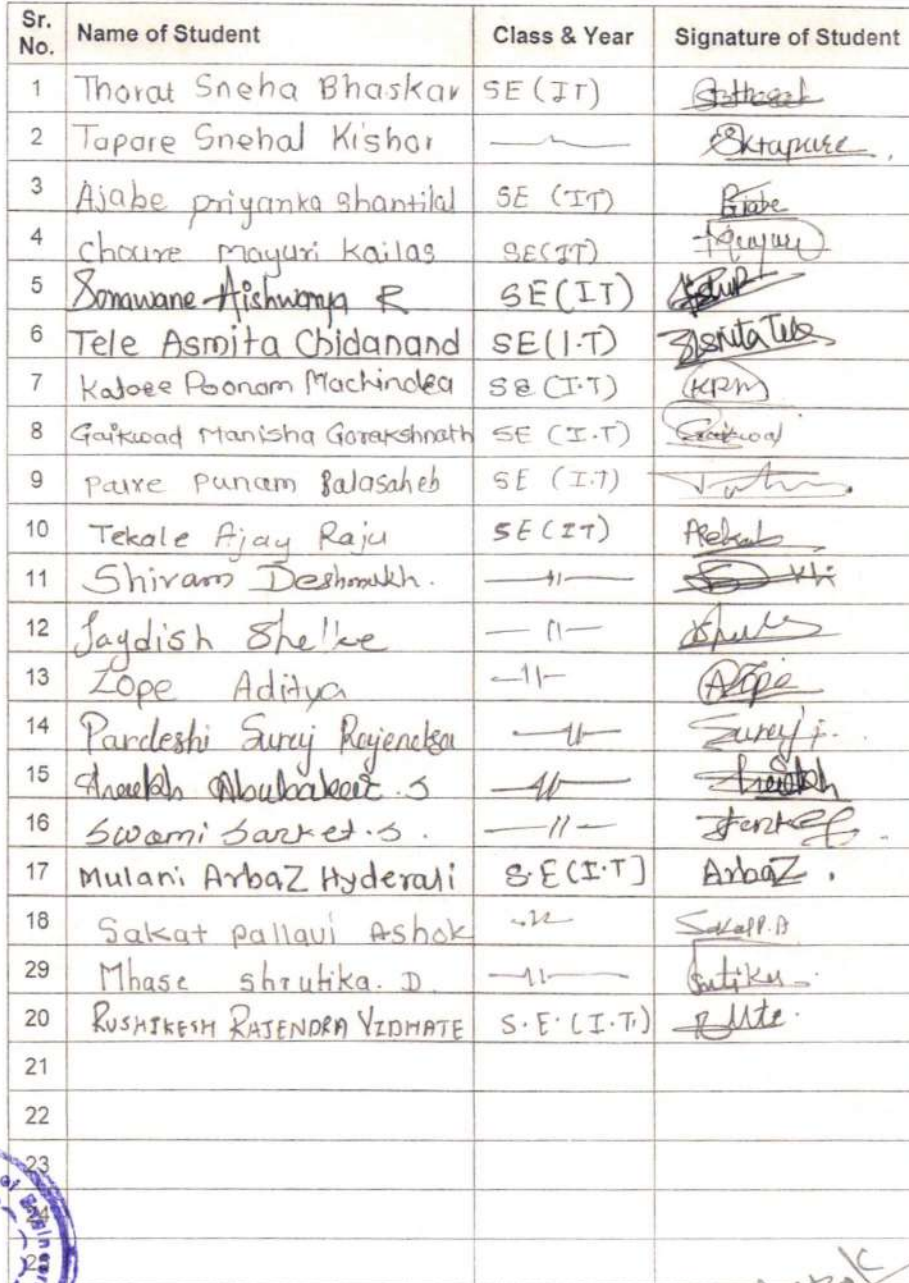 Sr. No. Name of Student Class & Year Signature of Student
1 Thorat Sneha Bhaskar SE(IT)
2 Tapare Snehal Kishor — Sktapare
3 Ajabe priyanka shantilal SE (IT) Pajabe
4 choure mayuri kailas SE(IT) Mayuri
5 Sonawane Aishwarya R SE(IT)
6 Tele Asmita Chidanand SE(I.T) Asmita Tele
7 Katore Poonam Machindra SE (I.T) KPM
8 Gaikwad Manisha Gorakshnath SE (I.T) Gaikwad
9 paire punam Balasaheb SE (I.T)
10 Tekale Ajay Raju SE(IT)
11 Shivam Deshmukh. —11—
12 Jaydish Shelke —11—
13 Zope Aditya —11— AZope
14 Pardeshi Suraj Rajendra —11— Suraj
15 —11—
16 Swami Sanket.S. —11— Sanket
17 Mulani ArbaZ Hyderali S.E(I.T] ArbaZ.
18 Sakat pallavi Ashok —11— Sakat P.A
29 Mhase shrutika. D —11—
20 RUSHIKESH RAJENDRA VIDHATE S.E.(I.T.)
21
22
23
24
25